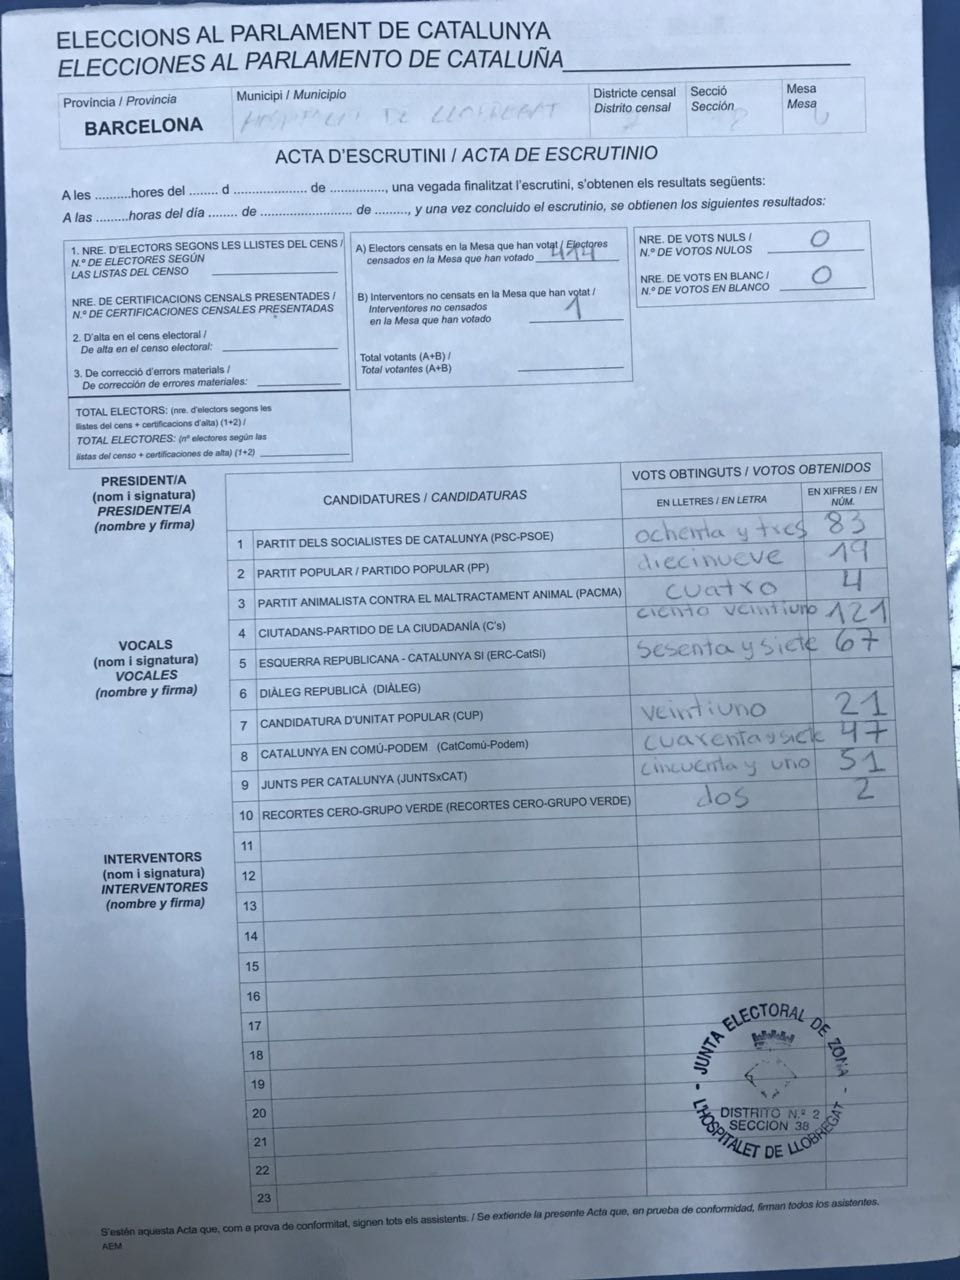 ELECCIONS AL PARLAMENT DE CATALUNYA
ELECCIONES AL PARLAMENTO DE CATALUÑA
Provincia / Provincia
BARCELONA
Municipi / Municipio
HOSPITALET DE LLOBREGAT
Districte censal
Distrito censal
2
Secció
Sección
Mesa
Mesa
ACTA D'ESCRUTINI / ACTA DE ESCRUTINIO
A les ..........hores del ........ d .................... de ..............., una vegada finalitzat l'escrutini, s'obtenen els resultats següents:
A las .........horas del día ........ de ......................... de ........., y una vez concluido el escrutinio, se obtienen los siguientes resultados:
1. NRE. D'ELECTORS SEGONS LES LLISTES DEL CENS /
N.º DE ELECTORES SEGÚN
LAS LISTAS DEL CENSO
NRE. DE CERTIFICACIONS CENSALS PRESENTADES /
N.º DE CERTIFICACIONES CENSALES PRESENTADAS
2. D'alta en el cens electoral /
De alta en el censo electoral:
3. De correcció d'errors materials /
De corrección de errores materiales:
TOTAL ELECTORS: (nre. d'electors segons les
llistes del cens + certificacions d'alta) (1+2) /
TOTAL ELECTORES: (nº electores según las
listas del censo + certificaciones de alta) (1+2)
A) Electors censats en la Mesa que han votat / Electores
censados en la Mesa que han votado 414
B) Interventors no censats en la Mesa que han votat /
Interventores no censados
en la Mesa que han votado 1
Total votants (A+B) /
Total votantes (A+B)
NRE. DE VOTS NULS /
N.º DE VOTOS NULOS 0
NRE. DE VOTS EN BLANC /
N.º DE VOTOS EN BLANCO 0
PRESIDENT/A
(nom i signatura)
PRESIDENTE/A
(nombre y firma)
VOCALS
(nom i signatura)
VOCALES
(nombre y firma)
INTERVENTORS
(nom i signatura)
INTERVENTORES
(nombre y firma)
CANDIDATURES / CANDIDATURAS
VOTS OBTINGUTS / VOTOS OBTENIDOS
EN LLETRES / EN LETRA
EN XIFRES / EN
NÚM.
1 PARTIT DELS SOCIALISTES DE CATALUNYA (PSC-PSOE) ochenta y tres 83
2 PARTIT POPULAR / PARTIDO POPULAR (PP) diecinueve 19
3 PARTIT ANIMALISTA CONTRA EL MALTRACTAMENT ANIMAL (PACMA) cuatro 4
4 CIUTADANS-PARTIDO DE LA CIUDADANÍA (C's) ciento veintiuno 121
5 ESQUERRA REPUBLICANA - CATALUNYA SI (ERC-CatSí) sesenta y siete 67
6 DIÀLEG REPUBLICÀ (DIÀLEG)
7 CANDIDATURA D'UNITAT POPULAR (CUP) veintiuno 21
8 CATALUNYA EN COMÚ-PODEM (CatComú-Podem) cuarenta y siete 47
9 JUNTS PER CATALUNYA (JUNTSxCAT) cincuenta y uno 51
10 RECORTES CERO-GRUPO VERDE (RECORTES CERO-GRUPO VERDE) dos 2
11
12
13
14
15
16
17
18
19
20
21
22
23
JUNTA ELECTORAL DE ZONA
DISTRITO N.º 2
SECCION 38
L'HOSPITALET DE LLOBREGAT
S'estén aquesta Acta que, com a prova de conformitat, signen tots els assistents. / Se extiende la presente Acta que, en prueba de conformidad, firman todos los asistentes.
AEM